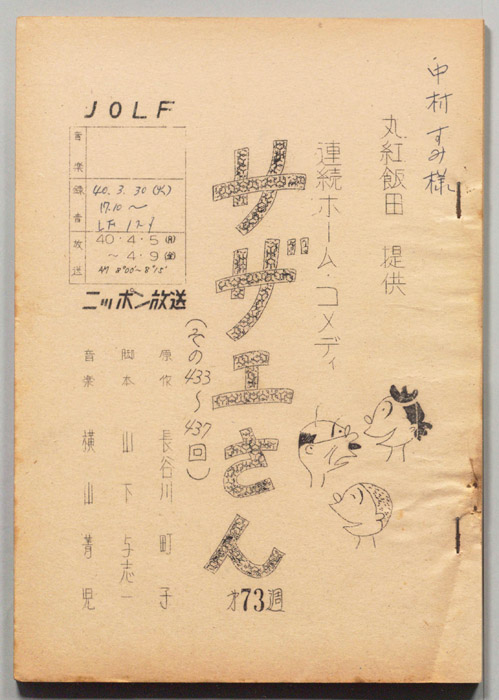 中村すみ様
丸紅飯田 提供
連続ホーム・コメディ
サザエさん
(その433〜437回)
第73週
JOLF
音楽録音
40.3.30(火)
17.10〜
LF 1スタ
放送
40・4・5(月)
〜4・9(金)
AM 8°00'〜8°15'
ニッポン放送
原作 長谷川町子
脚本 山下与志一
音楽 横山菁児